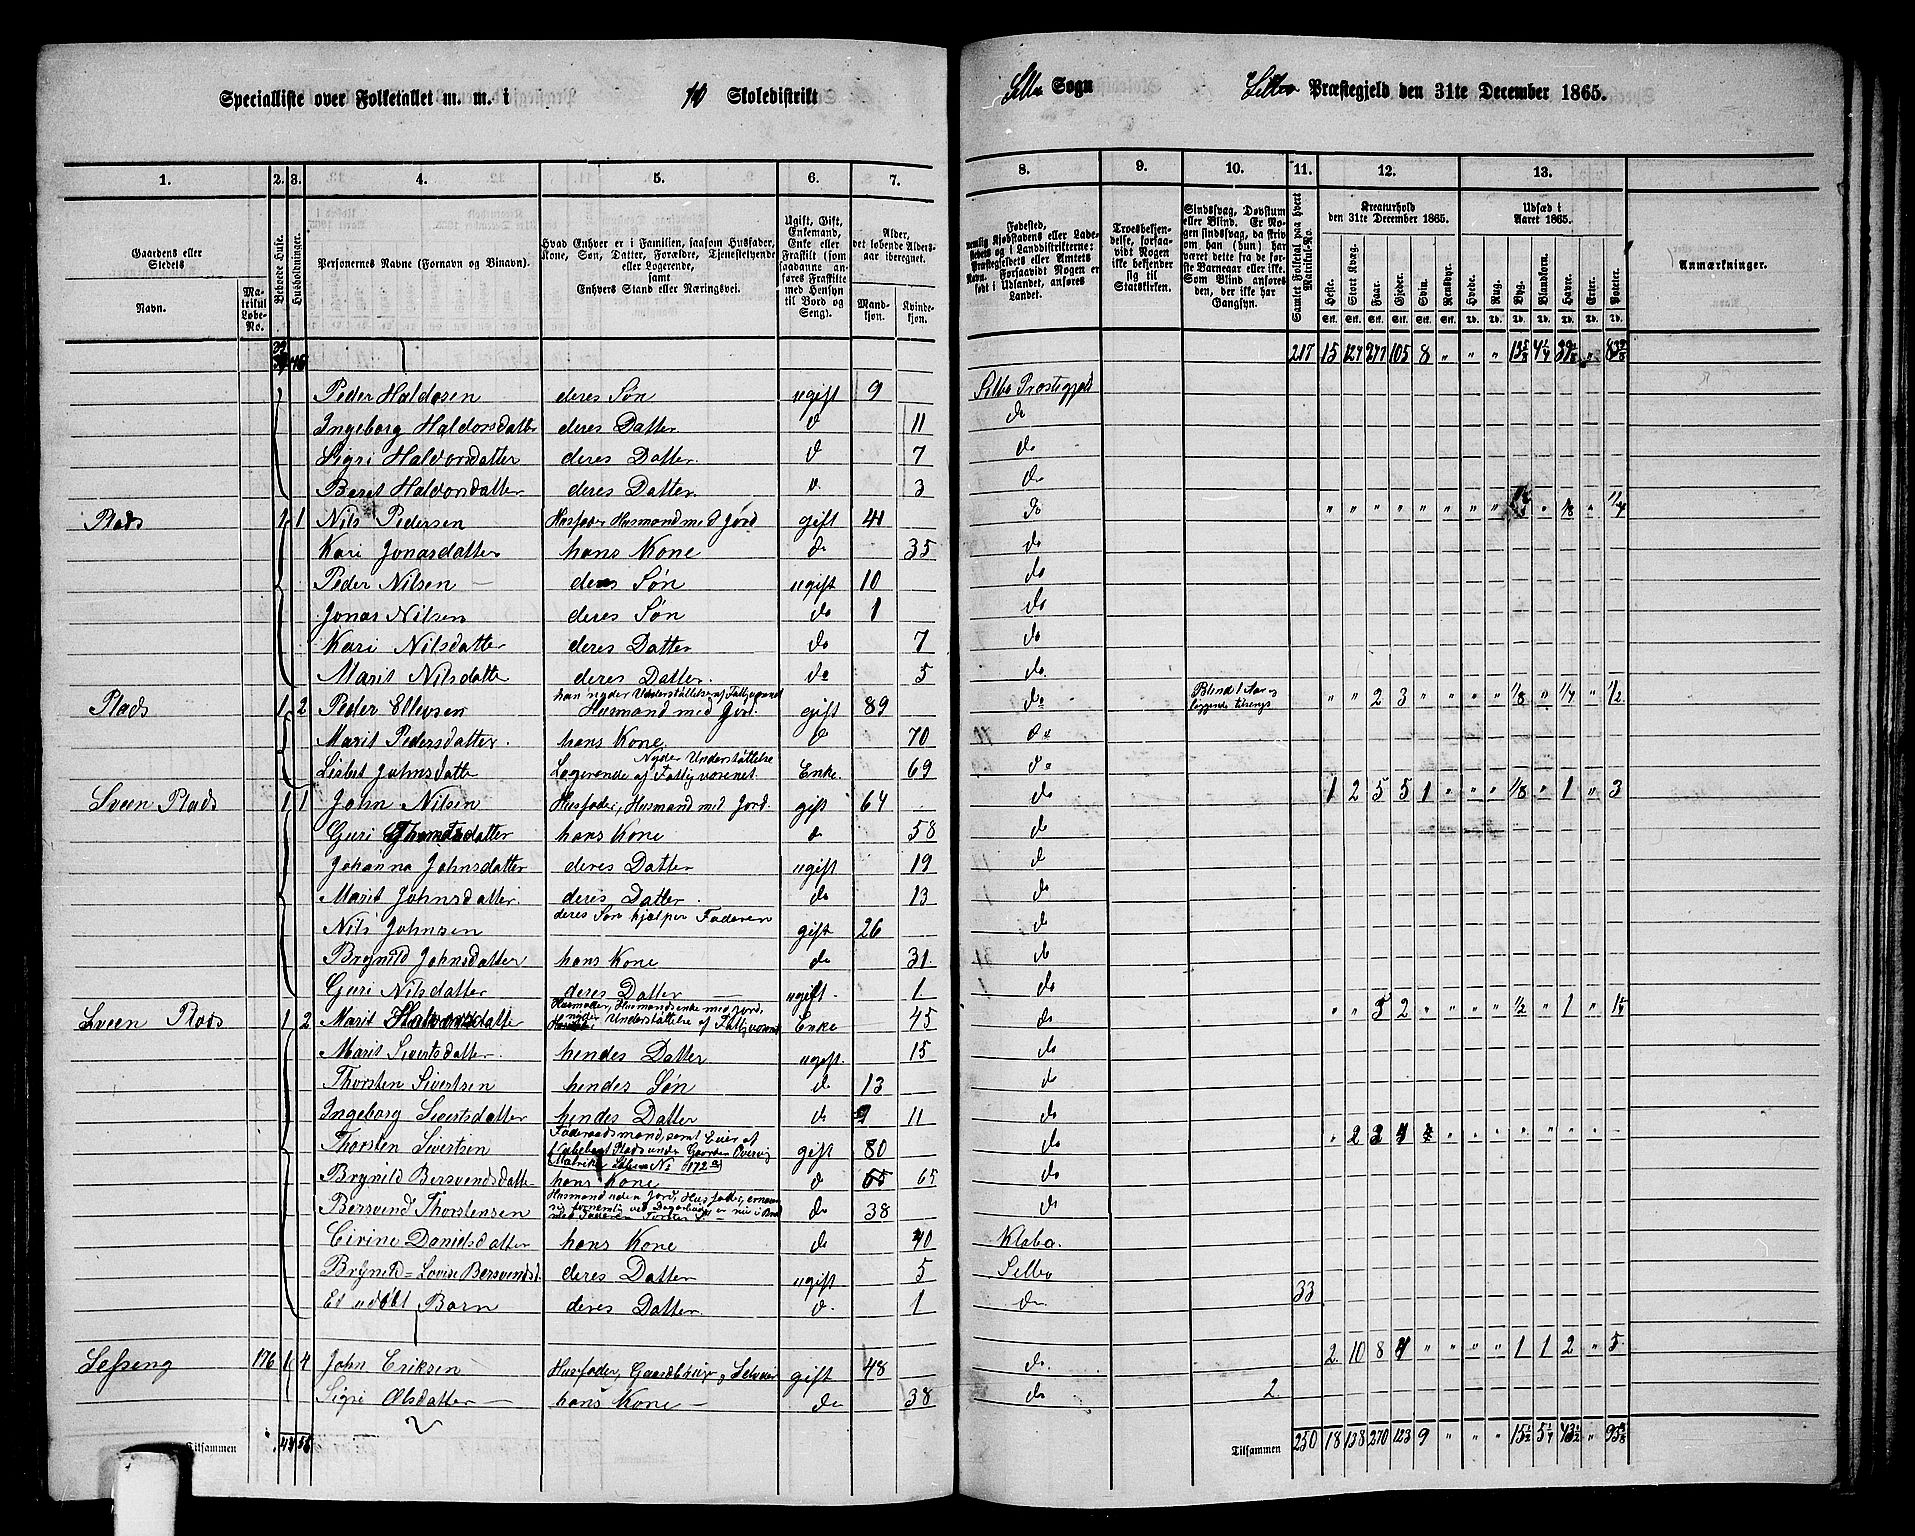 Specialliste over Folketallet m. m. i 10 Skoledistrikt
Selbo Sogn Selbo Præstegjeld den 31te December 1865.
1. 2. 3. 4. 5. 6. 7. 8. 9. 10. 11. 12. 13.
Gaardens eller Stedets Navn. Matrikul Løbe-No.
Beboede Huse. Husholdninger.
Personernes Navne (Fornavn og Binavn).
Hvad Enhver er i Familien, saasom Husfader, Kone, Søn, Datter, Forældre, Tjenestetyende eller Logerende, samt Enhvers Stand eller Næringsvei.
Ugift, Gift, Enkemand, Enke eller Fraskilt (som saadanne anføres Fraskilte med Hensyn til Bord og Seng).
Alder, det løbende Alders-aar iberegnet. Mand-kjøn. Kvinde-kjøn.
Fødested, nemlig Kjøbstadens eller Ladestedets og i Landdistrikterne: Præstegjeldets eller Amtets Navn. Forsaavidt Nogen er født i Udlandet, anføres Landet.
Troesbekjendelse, forsaavidt Nogen ikke bekjender sig til Statskirken.
Sindssvag, Døvstum eller Blind. Er Nogen sindssvag, da skriv om han (hun) har været dette fra de første Barneaar eller ikke. Som Blind anføres den, der ikke har Gangsyn.
Samlet Folketal paa hvert Matrikul-No.
Kreaturhold den 31te December 1865. Heste. Stort Kvæg. Faar. Gjeder. Svin. Rensdyr.
Udsæd i Aaret 1865. Hvede. Rug. Byg. Blandkorn. Havre. Erter. Poteter.
Anmærkninger.
217 15 127 247 105 8 " " "
Peder Haldosen deres Søn ugift 9 Selbo Præstegjeld
Ingeborg Haldorsdatter deres Datter d 11 do
Sigri Halvorsdatter deres Datter d 7 do
Beret Halvorsdatter deres Datter d 3 do
Plads 1 1 Nils Pedersen Husfader Husmand med Jord gift 41 do
Kari Jonasdatter hans Kone do 35 do
Peder Nilsen deres Søn ugift 10 do
Jonas Nilsen deres Søn do 1 do
Kari Nilsdatter deres Datter do 7 do
Marit Nilsdatter deres Datter do 5 do
Plads 1 2 Peder Ellevsen han nyder Understøttelse af Fattigvæsenet Husmand med Jord. gift 89 do Blind 1 Aar og liggende tilsengs " " 2 3 " " " " 1/8 " 1/4 " 1/2
Marit Pedersdatter. hans Kone d 70 do
Lisbet Johnsdatter Nyder Understøttelse Logerende af Fattigvæsenet. Enke. 69 do
Sveen Plads 1 1 John Nilsen Husfader, Husmand med Jord. gift 64 do 1 2 5 5 1 " " " 1/8 " 1 " 3
Guri hans Kone d 58 do
Johanna Johnsdatter deres Datter ugift 19 d
Marit Johnsdatter. deres Datter do 13 do
Nils Johnsen deres Søn hjælper Faderen gift 26 do
Brynild Johnsdatter hans Kone do 31 do
Guri Nilsdatter deres Datter ugift. 1 do
Sveen Plads 1 2 Marit Halvorsdatter Husmoder, Husmandsenke med Jord, nyder Understøttelse af Fattigvæsenet Enke 45 do " " 5 2 " " " " 1/2 " 1 "
Marit Sivertsdatter. hendes Datter ugift. 15 do
Thorsten Sivertsen hendes Søn d 13 do
Ingeborg Sivertsdatter hendes Datter d 11 do
Thorsten Sivertsen Føderaadsmand, samt Eier af Pladsen under Gaarden gift 80 do
Brynild Bersvendsdatter hans Kone d 65 do
Bersvend Thorstensen Husmand uden Jord, Husfader do 38 do
Cirine Danielsdatter hans Kone do 40 Klæbo.
Brynild-Lovise Bersvendsd. deres Datter ugift 5 Selbo
Et udøbt Barn deres Datter. d. 1 do 33
Sesseng 176 1 4 John Eriksen Husfader, Gaardbruger, Selveier gift 48 do 2 10 8 4 " " " " 1 1 2 " 5
Sigri Olsdatter hans Kone do 38 do 2
Tilsammen
Tilsammen 250 18 138 270 123 9 " " "